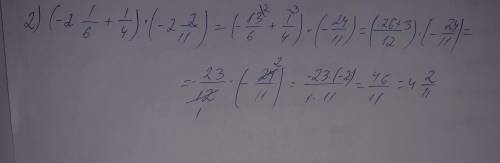 2) (-2 1/6 + 1/4) · (-2 2/11) = (-13/6 ² + 1/4 ³) · (-24/11) = (-26+3/12) · (-24/11) =
= -23/12 1 · (-24/11 ²) = -23·(-2)/1·11 = 46/11 = 4 2/11